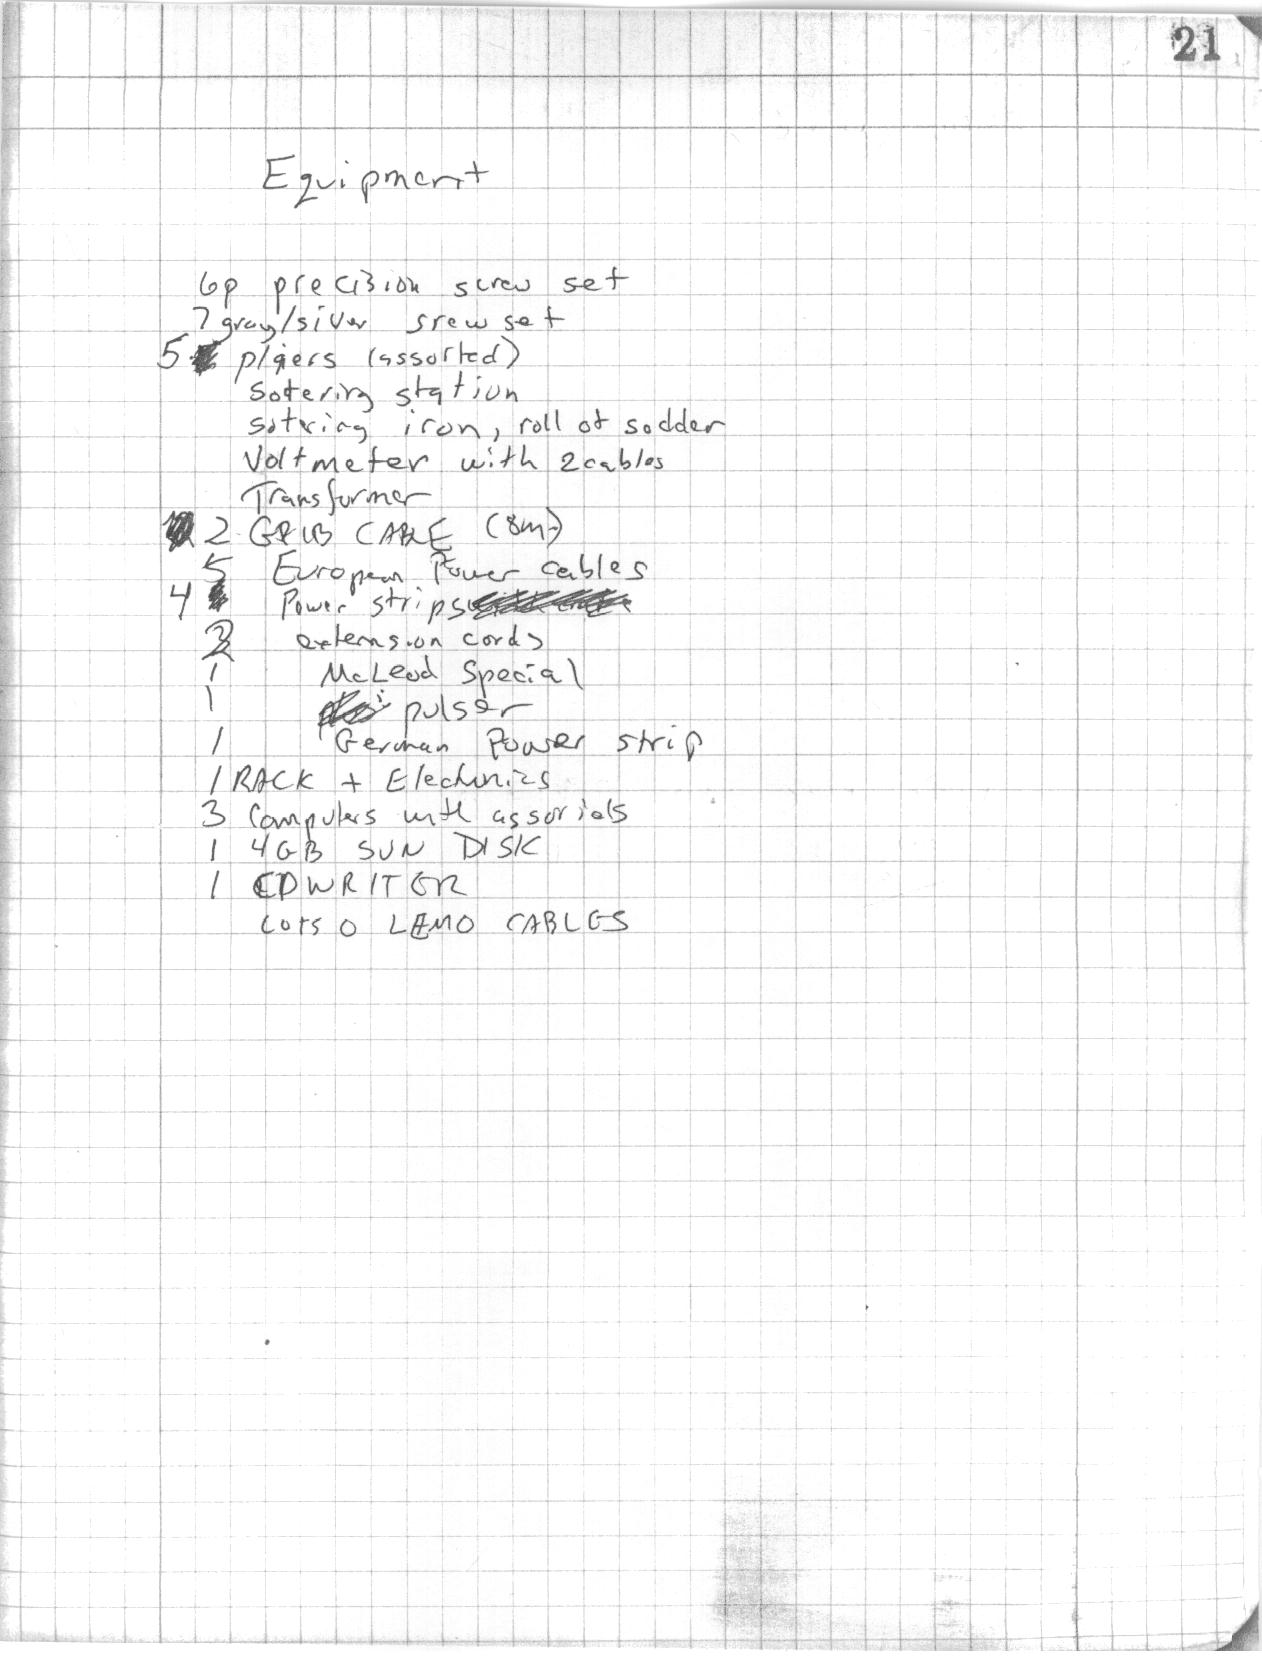 21
Equipment
6p precision screw set
7 gray/silver srew set
5 pliers (assorted)
Sotering station
sotering iron, roll of sodder
Voltmeter with 2 cables
Transformer
2 GPIB CABLE (8m)
5 European Power cables
4 Power strips
extension cords
1 McLeod Special
1 pulser
1 German Power strip
1 RACK + Electronics
3 Computers with
1 4GB SUN DISK
1 CDWRITER
LOTS O LEMO CABLES